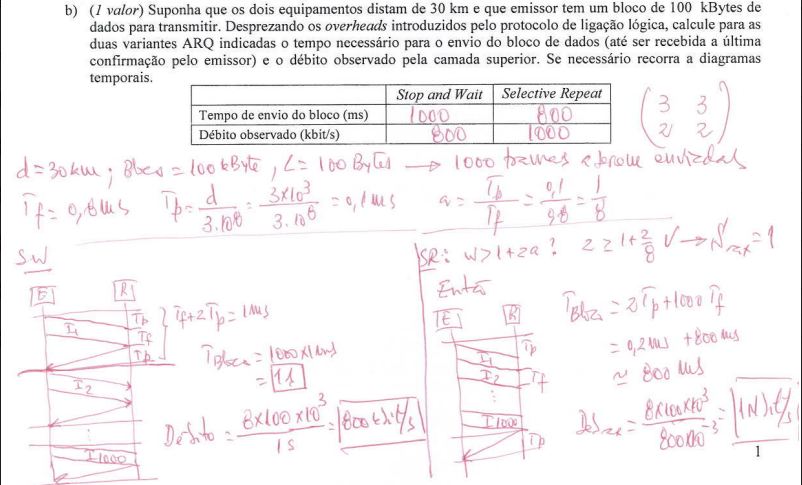 b) (1 valor) Suponha que os dois equipamentos distam de 30 km e que emissor tem um bloco de 100 kBytes de
dados para transmitir. Desprezando os overheads introduzidos pelo protocolo de ligação lógica, calcule para as
duas variantes ARQ indicadas o tempo necessário para o envio do bloco de dados (até ser recebida a última
confirmação pelo emissor) e o débito observado pela camada superior. Se necessário recorra a diagramas
temporais.
Stop and Wait Selective Repeat
Tempo de envio do bloco (ms) 1000 800
Débito observado (kbit/s) 800 1000
(3 3
2 2)
d=30km; Bloco = 100 kByte, L= 100 Bytes → 1000 tramas a serem enviadas
Tf= 0,8ms Tp= d/3.10^8 = 3x10^3/3.10^8 = 0,1ms a= Tp/Tf = 0,1/0,8 = 1/8
SW
E R
I1
Tp
Tf
Tp
Tf+2Tp=1ms
I2
I1000
TBloco = 1000x1ms
= 1s
Débito = 8x100x10^3/1s = 800 kbit/s
SR: W>1+2a? 2≥1+2/8 V →
=1
Então
E R
I1
I2
I1000
Tp
Tf
Tp
TBloco = 2Tp+1000Tf
= 0,2ms +800ms
≃ 800ms
= 8x100x10^3/800x10^-3 = 1Mbit/s
1